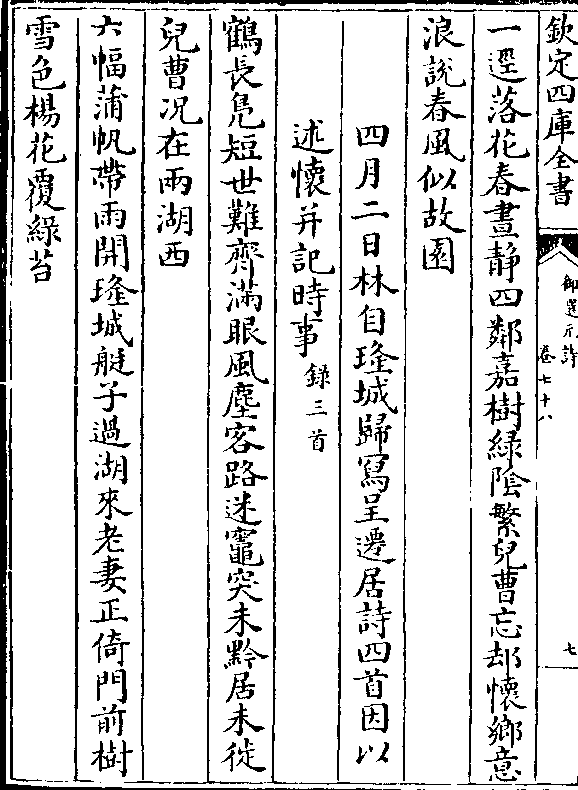 欽定四庫全書
御選元詩
卷七十八
七
一逕落花春晝静四鄰嘉樹緑陰繁兒曹忘却懷鄉意
浪説春風似故園
四月二日林自琫城歸寫呈遷居詩四首因以
述懷并記時事録三首
鶴長鳬短世難齊滿眼風塵客路迷竈突未黔居未徙
兒曹况在兩湖西
六幅蒲帆帶雨開琫城艇子過湖來老妻正倚門前樹
雪色楊花覆緑苔